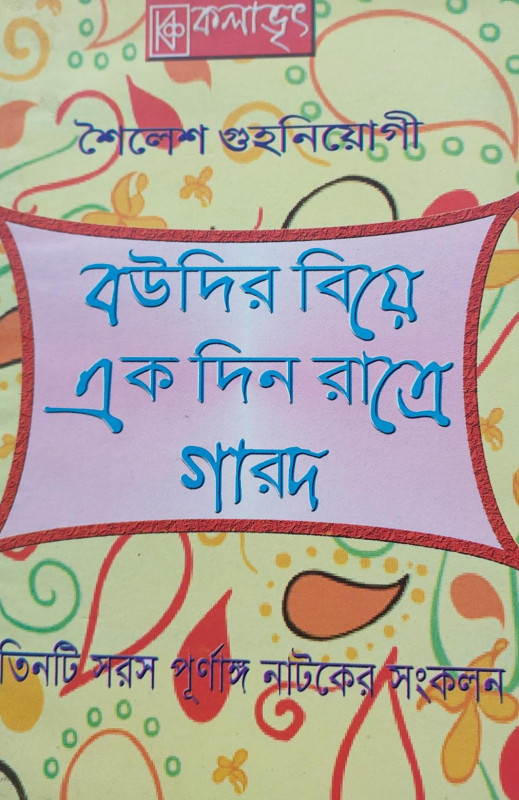 কলাভৃৎ
শৈলেশ গুহনিয়োগী
বউদির বিয়ে
এক দিন রাত্রে
গারদ
তিনটি সরস পূর্ণাঙ্গ নাটকের সংকলন